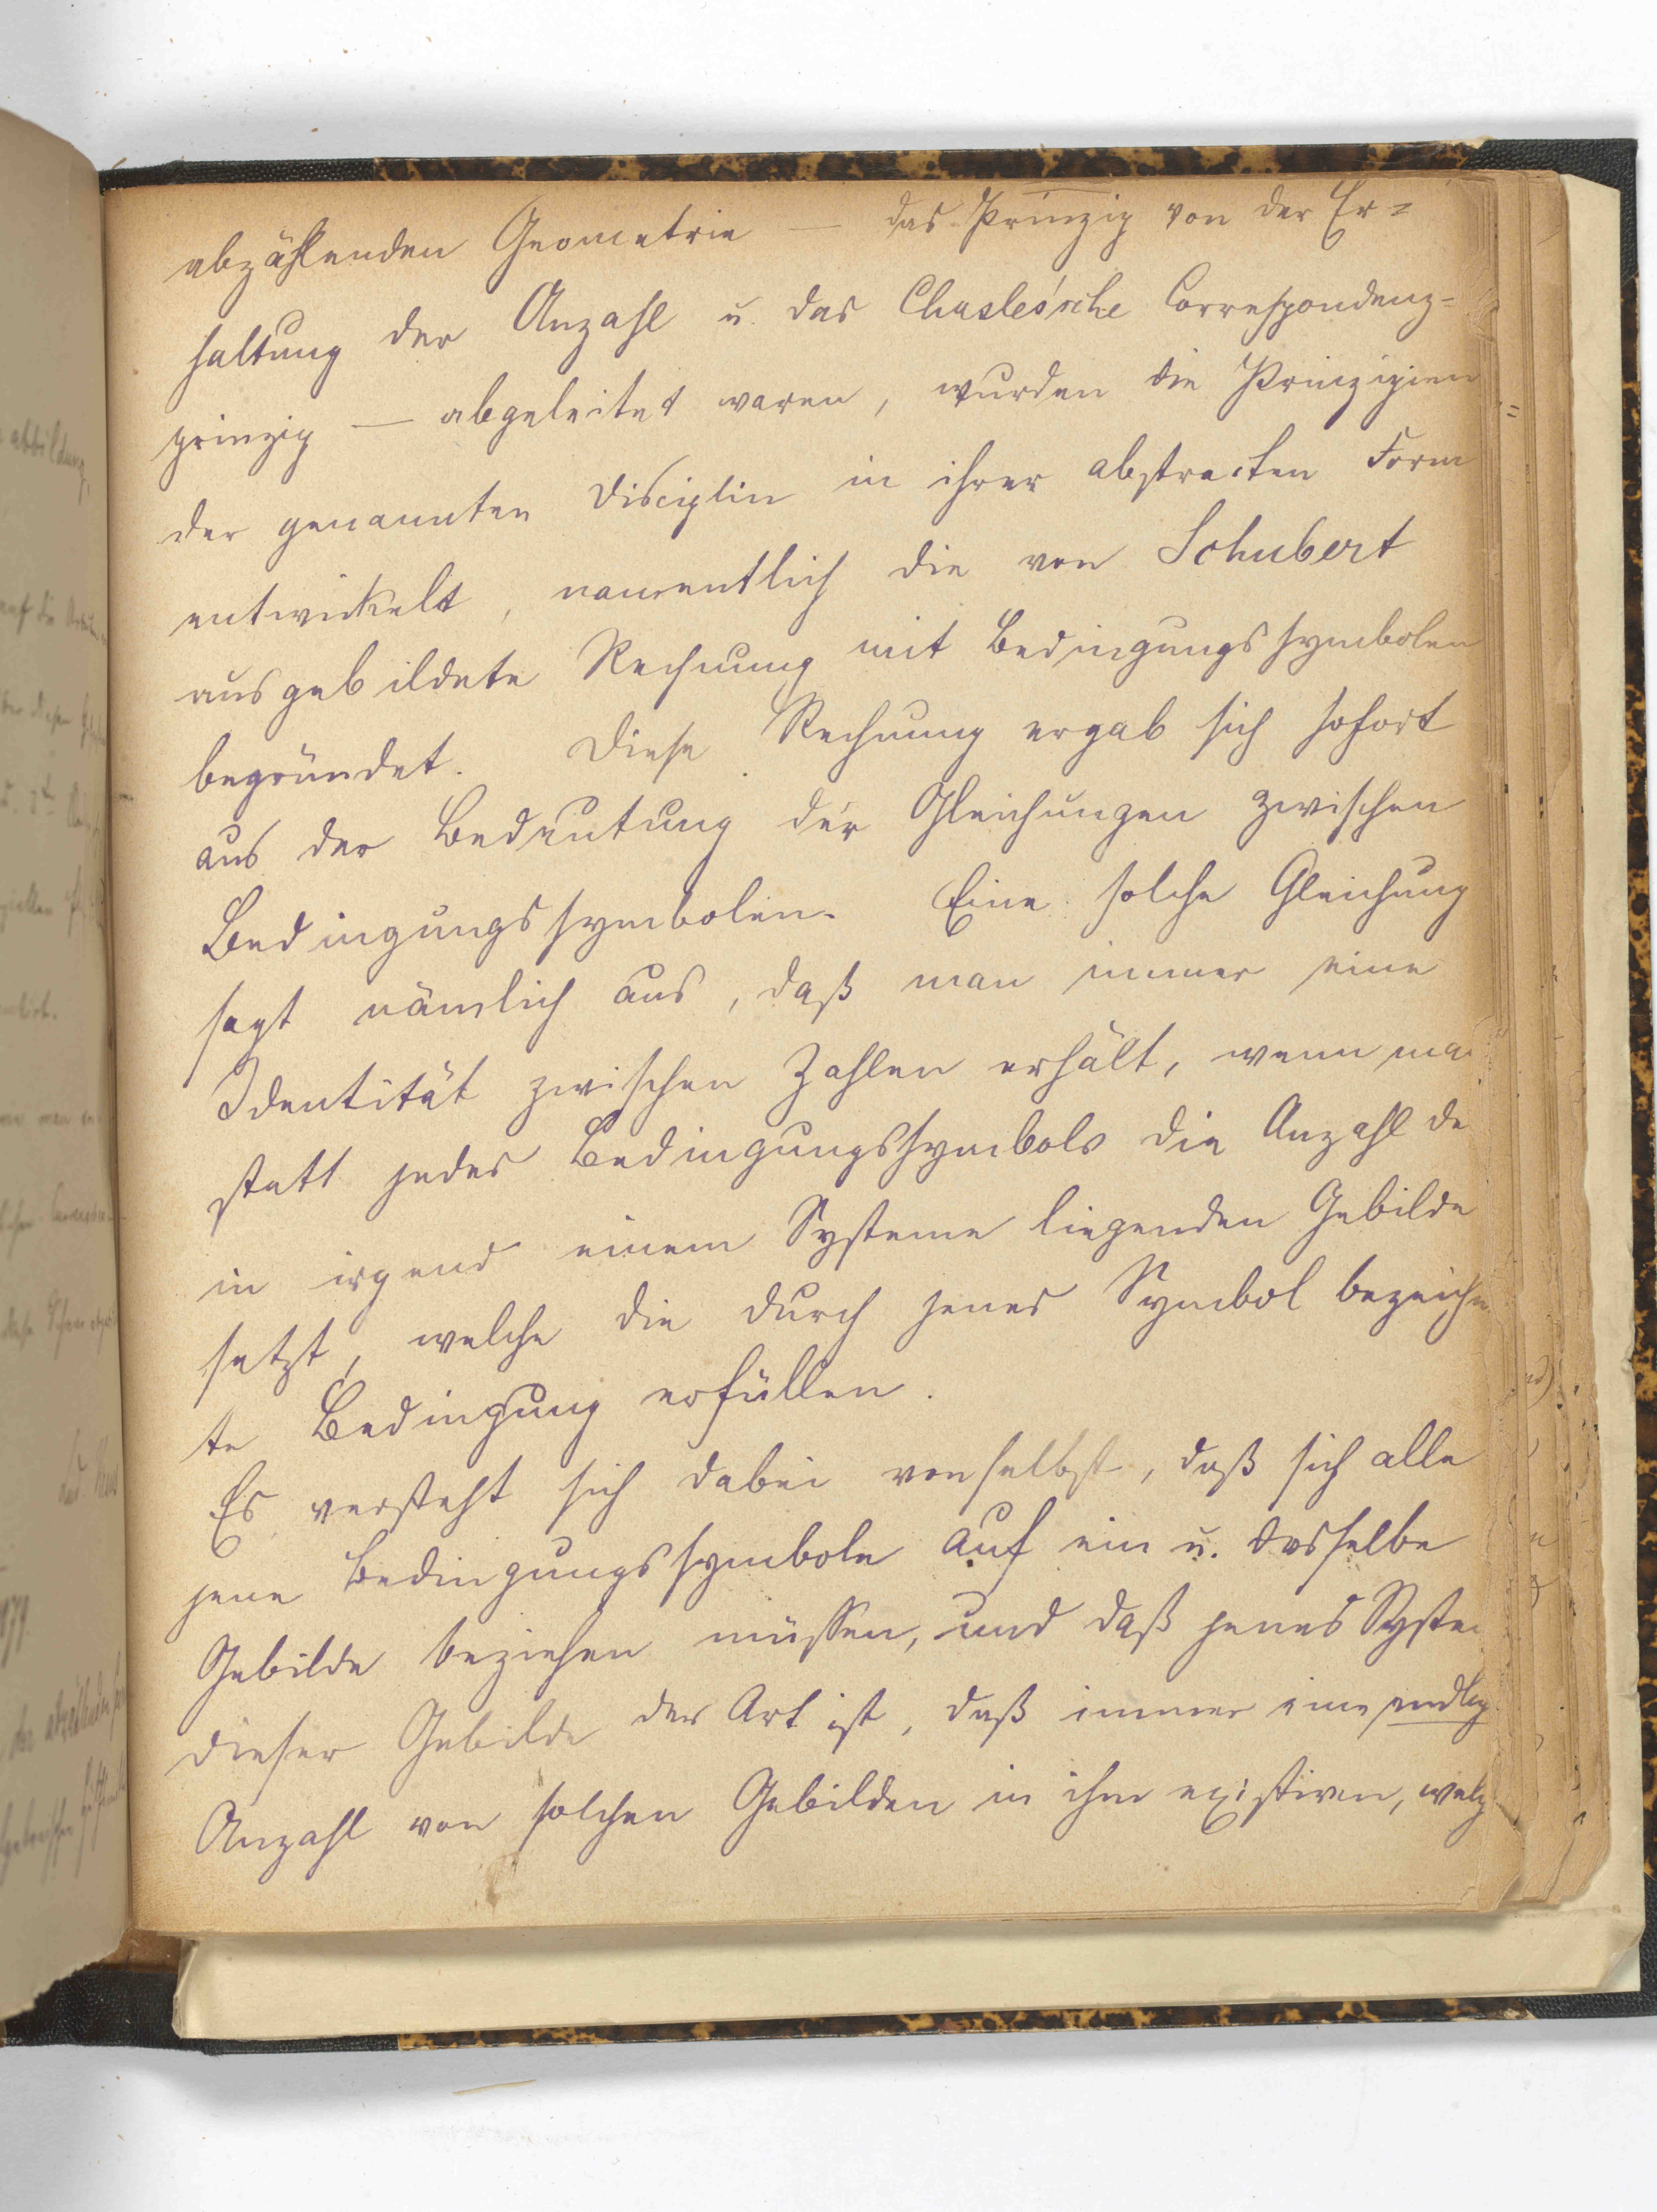 abzählenden Geometrie — das Prinzip von der Er=
haltung der Anzahl u. das Chasles'sche Correspondenz-
prinzip — abgeleitet waren, wurden die Prinzipien
der genannten Disciplin in ihrer abstracten Form
entwickelt, namentlich die von Schubert
ausgebildete Rechnung mit Bedingungssymbolen
begründet. Diese Rechnung ergab sich sofort
aus der Bedeutung der Gleichungen zwischen
Bedingungssymbolen. Eine solche Gleichung
sagt nämlich aus, daß man immer eine
Identität zwischen Zahlen erhält, wenn ma
statt jedes Bedingungssymbols die Anzahl de
in irgend einem Systeme liegenden Gebilde
setzt, welche die durch jenes Symbol bezeichn
te Bedingung erfüllen.
Es versteht sich dabei von selbst, daß sich alle
jene Bedingungssymbole auf ein u. dasselbe
Gebilde beziehen müssen, und daß jenes System
dieser Gebilde der Art ist, daß immer eine endlich
Anzahl von solchen Gebilden in ihm existiren, welch